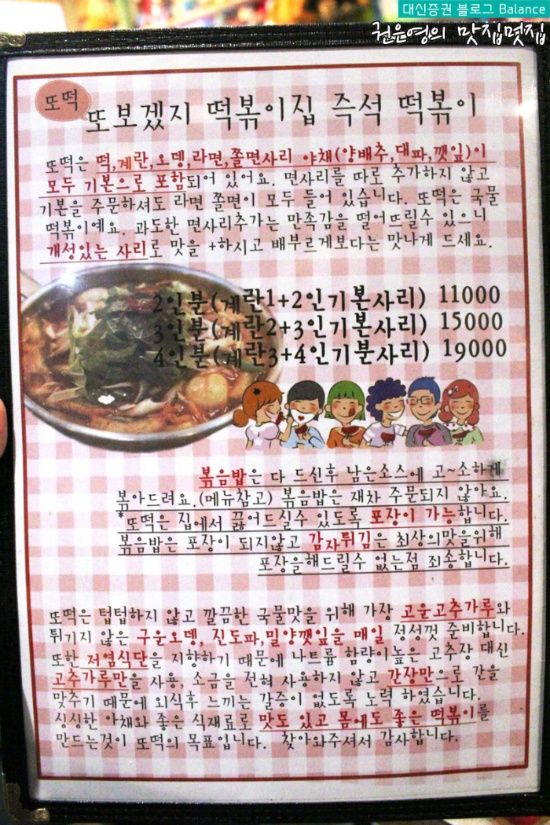 대신증권 블로그 Balance
권은영의 맛집멋집
또떡
또보겠지 떡볶이집 즉석 떡볶이
또떡은 떡,계란,오뎅,라면,쫄면사리 야채(양배추,대파,깻잎)이
모두 기본으로 포함되어 있어요. 면사리를 따로 추가하지 않고
기본을 주문하셔도 라면 쫄면이 모두 들어 있습니다. 또떡은 국물
떡볶이예요. 과도한 면사리추가는 만족감을 떨어뜨릴수 있으니
개성있는 사리로 맛을 +하시고 배부르게보다는 맛나게 드세요.
2인분(계란1+2인기본사리) 11000
3인분(계란2+3인기본사리) 15000
4인분(계란3+4인기본사리) 19000
볶음밥은 다 드신후 남은소스에 고~소하게
볶아드려요.(메뉴참고) 볶음밥은 재차 주문되지 않아요.
*또떡은 집에서 끓어드실수 있도록 포장이 가능합니다.
볶음밥은 포장이 되지않고 감자튀김은 최상의맛을위해
포장을해드릴수 없는점 죄송합니다.
또떡은 텁텁하지 않고 깔끔한 국물맛을 위해 가장 고운고추가루와
튀기지 않은 구운오뎅, 진도파,밀양깻잎을 매일 정성껏 준비합니다.
또한 저염식단을 지향하기 때문에 나트륨 함량이높은 고추장 대신
고추가루만을 사용, 소금을 전혀 사용하지 않고 간장만으로 간을
맞추기 때문에 외식후 느끼는 갈증이 없도록 노력 하였습니다.
싱싱한 야채와 좋은 식재료로 맛도 있고 몸에도 좋은 떡볶이를
만드는것이 또떡의 목표입니다. 찾아와주셔서 감사합니다.